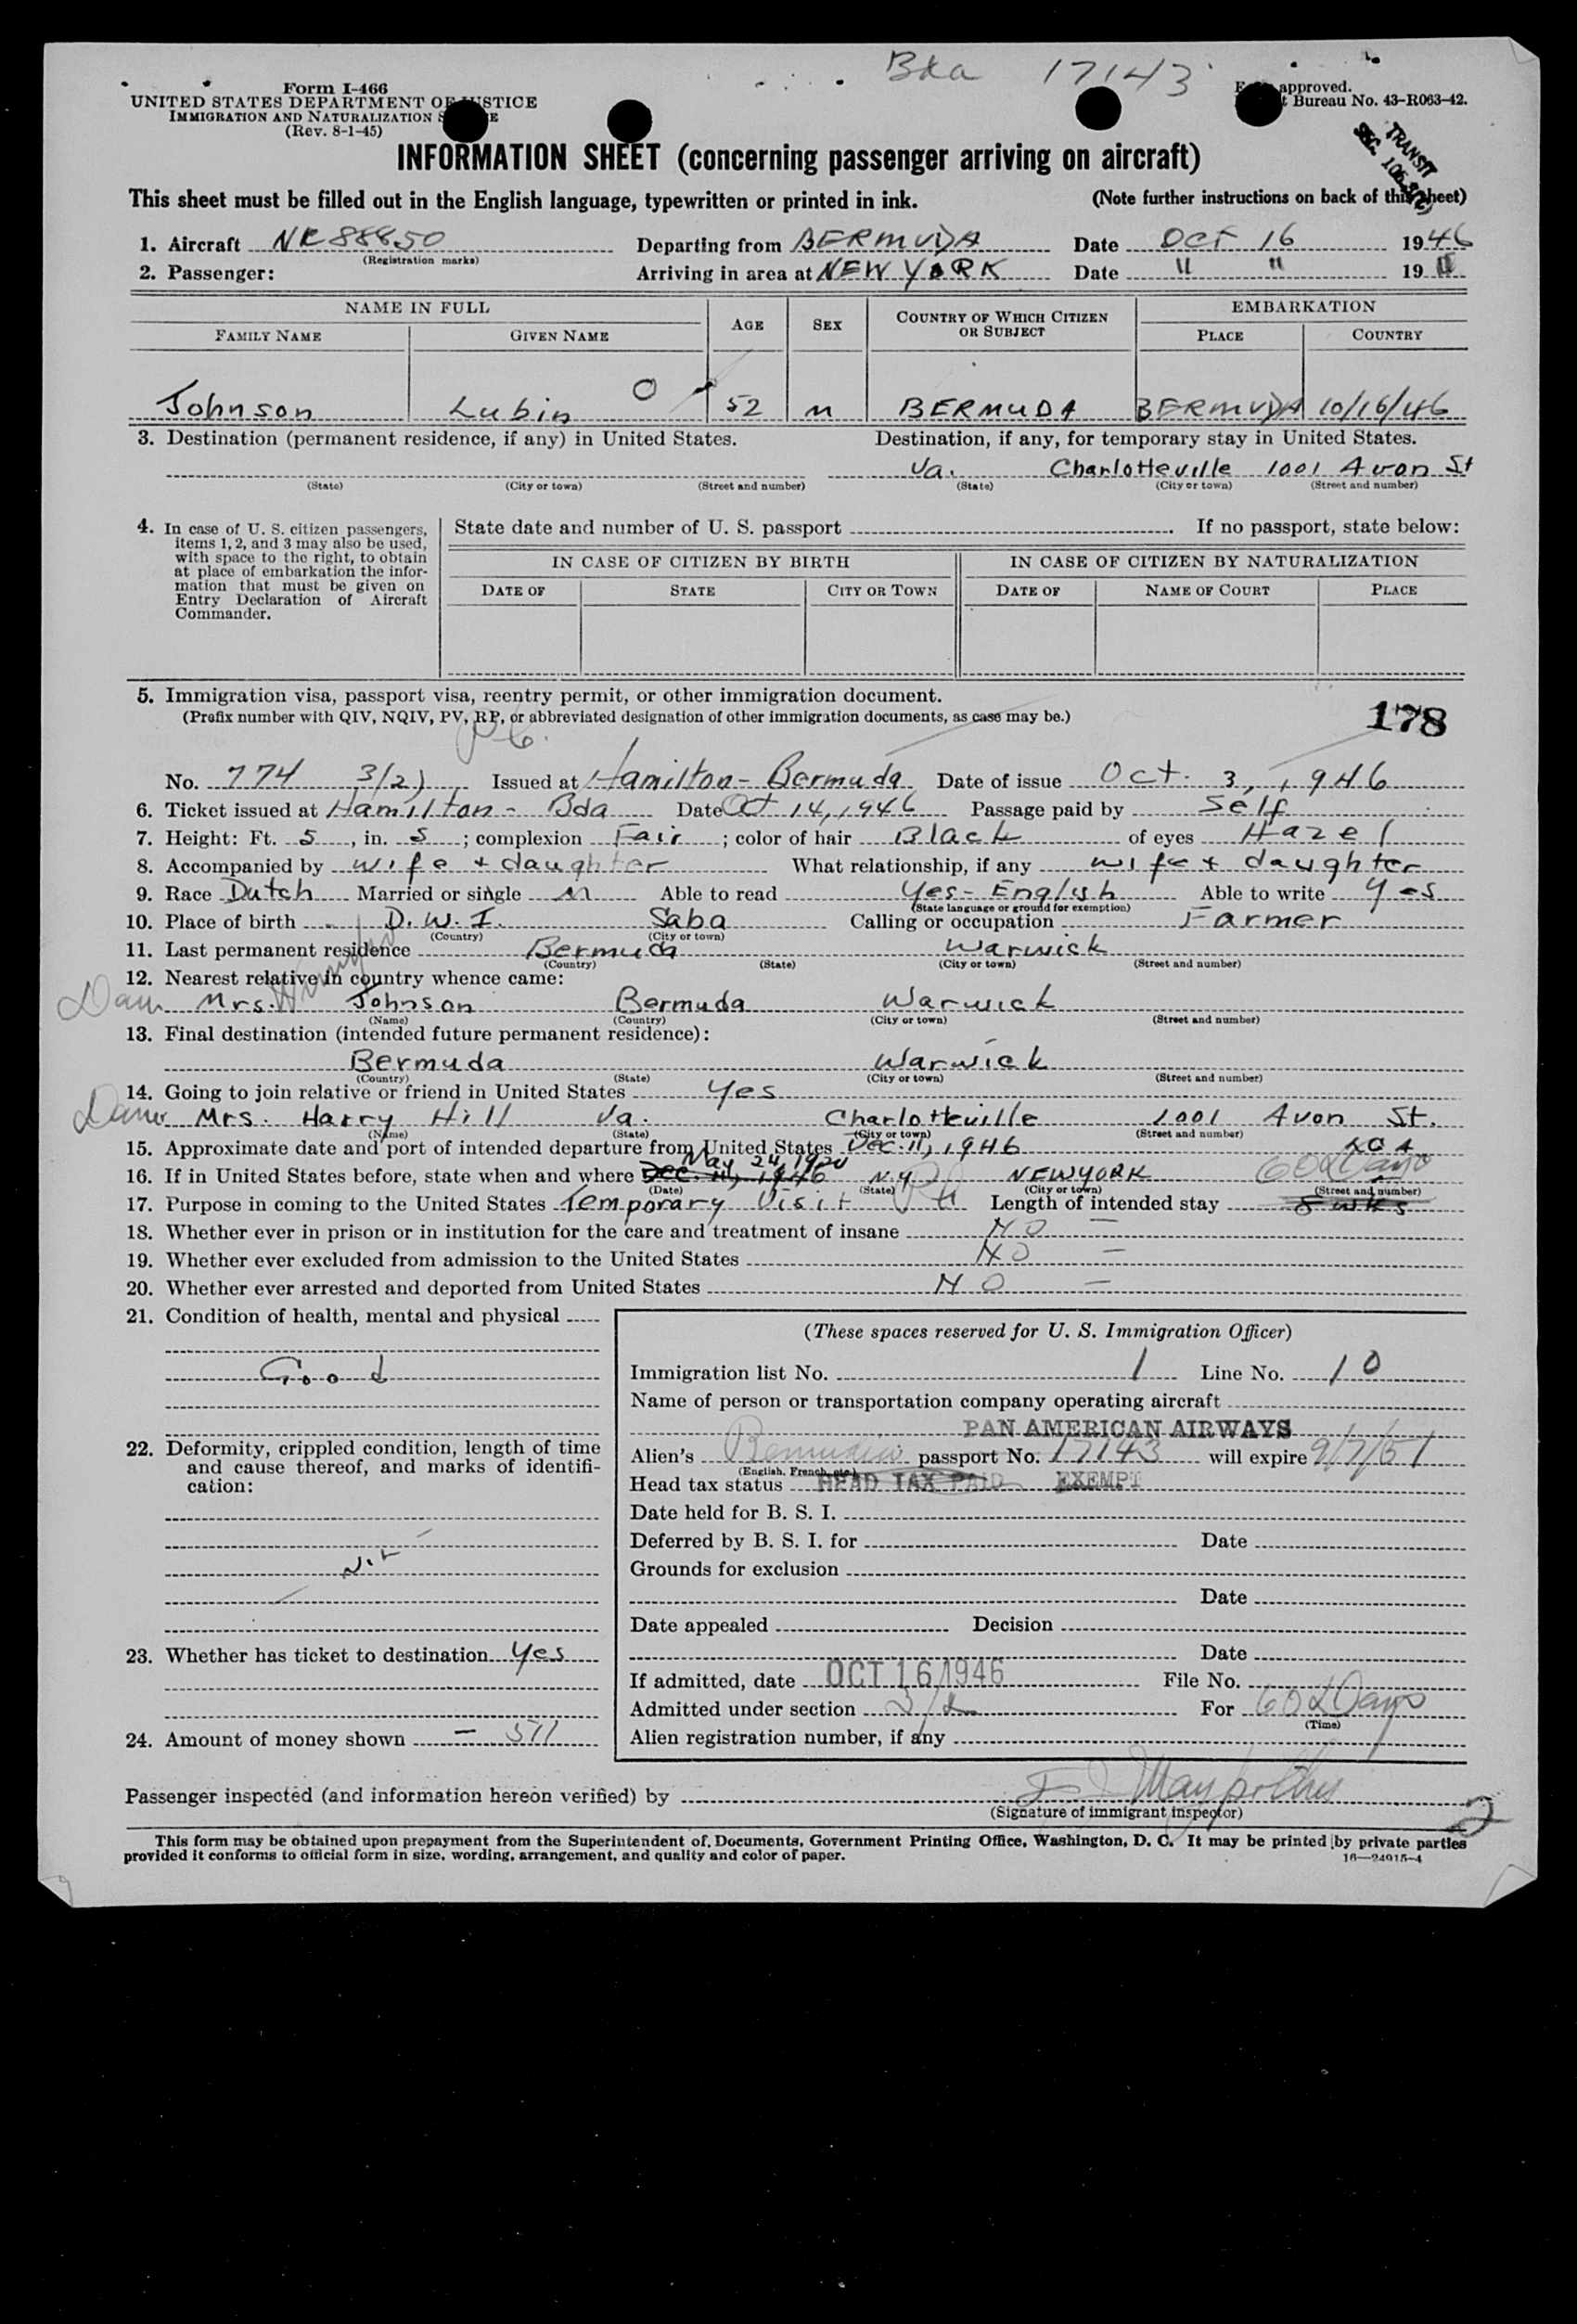 Bda 17143
Form I-466
UNITED STATES DEPARTMENT OF JUSTICE
IMMIGRATION AND NATURALIZATION
(Rev. 8-1-45)
approved.
Bureau No. 43-R063-42.
TRANSIT
SEC.
INFORMATION SHEET (concerning passenger arriving on aircraft)
This sheet must be filled out in the English language, typewritten or printed in ink. (Note further instructions on back of this sheet)
1. Aircraft NC88850 Departing from BERMUDA Date OCT 16 1946
(Registration marks)
2. Passenger: Arriving in area at NEW YORK Date " " 19 "
NAME IN FULL AGE SEX COUNTRY OF WHICH CITIZEN OR SUBJECT EMBARKATION
FAMILY NAME GIVEN NAME PLACE COUNTRY
Johnson Lubin O 52 M BERMUDA BERMUDA 10/16/46
3. Destination (permanent residence, if any) in United States. Destination, if any, for temporary stay in United States.
Va. Charlotteville 1001 Avon St
(State) (City or town) (Street and number) (State) (City or town) (Street and number)
4. In case of U. S. citizen passengers, items 1, 2, and 3 may also be used, with space to the right, to obtain at place of embarkation the information that must be given on Entry Declaration of Aircraft Commander.
State date and number of U. S. passport If no passport, state below:
IN CASE OF CITIZEN BY BIRTH IN CASE OF CITIZEN BY NATURALIZATION
DATE OF STATE CITY OR TOWN DATE OF NAME OF COURT PLACE
5. Immigration visa, passport visa, reentry permit, or other immigration document.
(Prefix number with QIV, NQIV, PV, RP, or abbreviated designation of other immigration documents, as case may be.)
178
No. 774 3/2) Issued at Hamilton - Bermuda Date of issue Oct. 3, 1946
6. Ticket issued at Hamilton - Bda Date Oct 14, 1946 Passage paid by Self
7. Height: Ft. 5, in. 5; complexion Fair; color of hair Black of eyes Hazel
8. Accompanied by wife + daughter What relationship, if any wife + daughter
9. Race Dutch Married or single M Able to read Yes - English Able to write Yes
(State language or ground for exemption)
10. Place of birth D.W.I. Saba Calling or occupation Farmer
(Country) (City or town)
11. Last permanent residence Bermuda Warwick
(Country) (State) (City or town) (Street and number)
12. Nearest relative in country whence came:
Mrs. Johnson Bermuda Warwick
(Name) (Country) (City or town) (Street and number)
13. Final destination (intended future permanent residence):
Bermuda Warwick
(Country) (State) (City or town) (Street and number)
14. Going to join relative or friend in United States Yes
Mrs. Harry Hill Va. Charlotteville 1001 Avon St.
(Name) (State) (City or town) (Street and number)
15. Approximate date and port of intended departure from United States Dec. 11, 1946
16. If in United States before, state when and where May 24, 1920 N.Y. NEWYORK 60 Days
(Date) (State) (City or town) (Street and number)
17. Purpose in coming to the United States Temporary Visit Length of intended stay 8 wks
18. Whether ever in prison or in institution for the care and treatment of insane NO -
19. Whether ever excluded from admission to the United States NO -
20. Whether ever arrested and deported from United States NO -
21. Condition of health, mental and physical
Good
22. Deformity, crippled condition, length of time and cause thereof, and marks of identification:
Nil
23. Whether has ticket to destination Yes
24. Amount of money shown
(These spaces reserved for U. S. Immigration Officer)
Immigration list No. 1 Line No. 10
Name of person or transportation company operating aircraft
PAN AMERICAN AIRWAYS
Alien's Bermudian passport No. 17143 will expire 9/7/51
(English, French, etc.)
Head tax status HEAD TAX PAID EXEMPT
Date held for B. S. I.
Deferred by B. S. I. for Date
Grounds for exclusion
Date
Date appealed Decision
Date
If admitted, date OCT 16 1946 File No.
Admitted under section 3/2 For 60 Days
(Time)
Alien registration number, if any
Passenger inspected (and information hereon verified) by
(Signature of immigrant inspector)
2
This form may be obtained upon prepayment from the Superintendent of Documents, Government Printing Office, Washington, D. C. It may be printed by private parties
provided it conforms to official form in size, wording, arrangement, and quality and color of paper.
16—24915-4